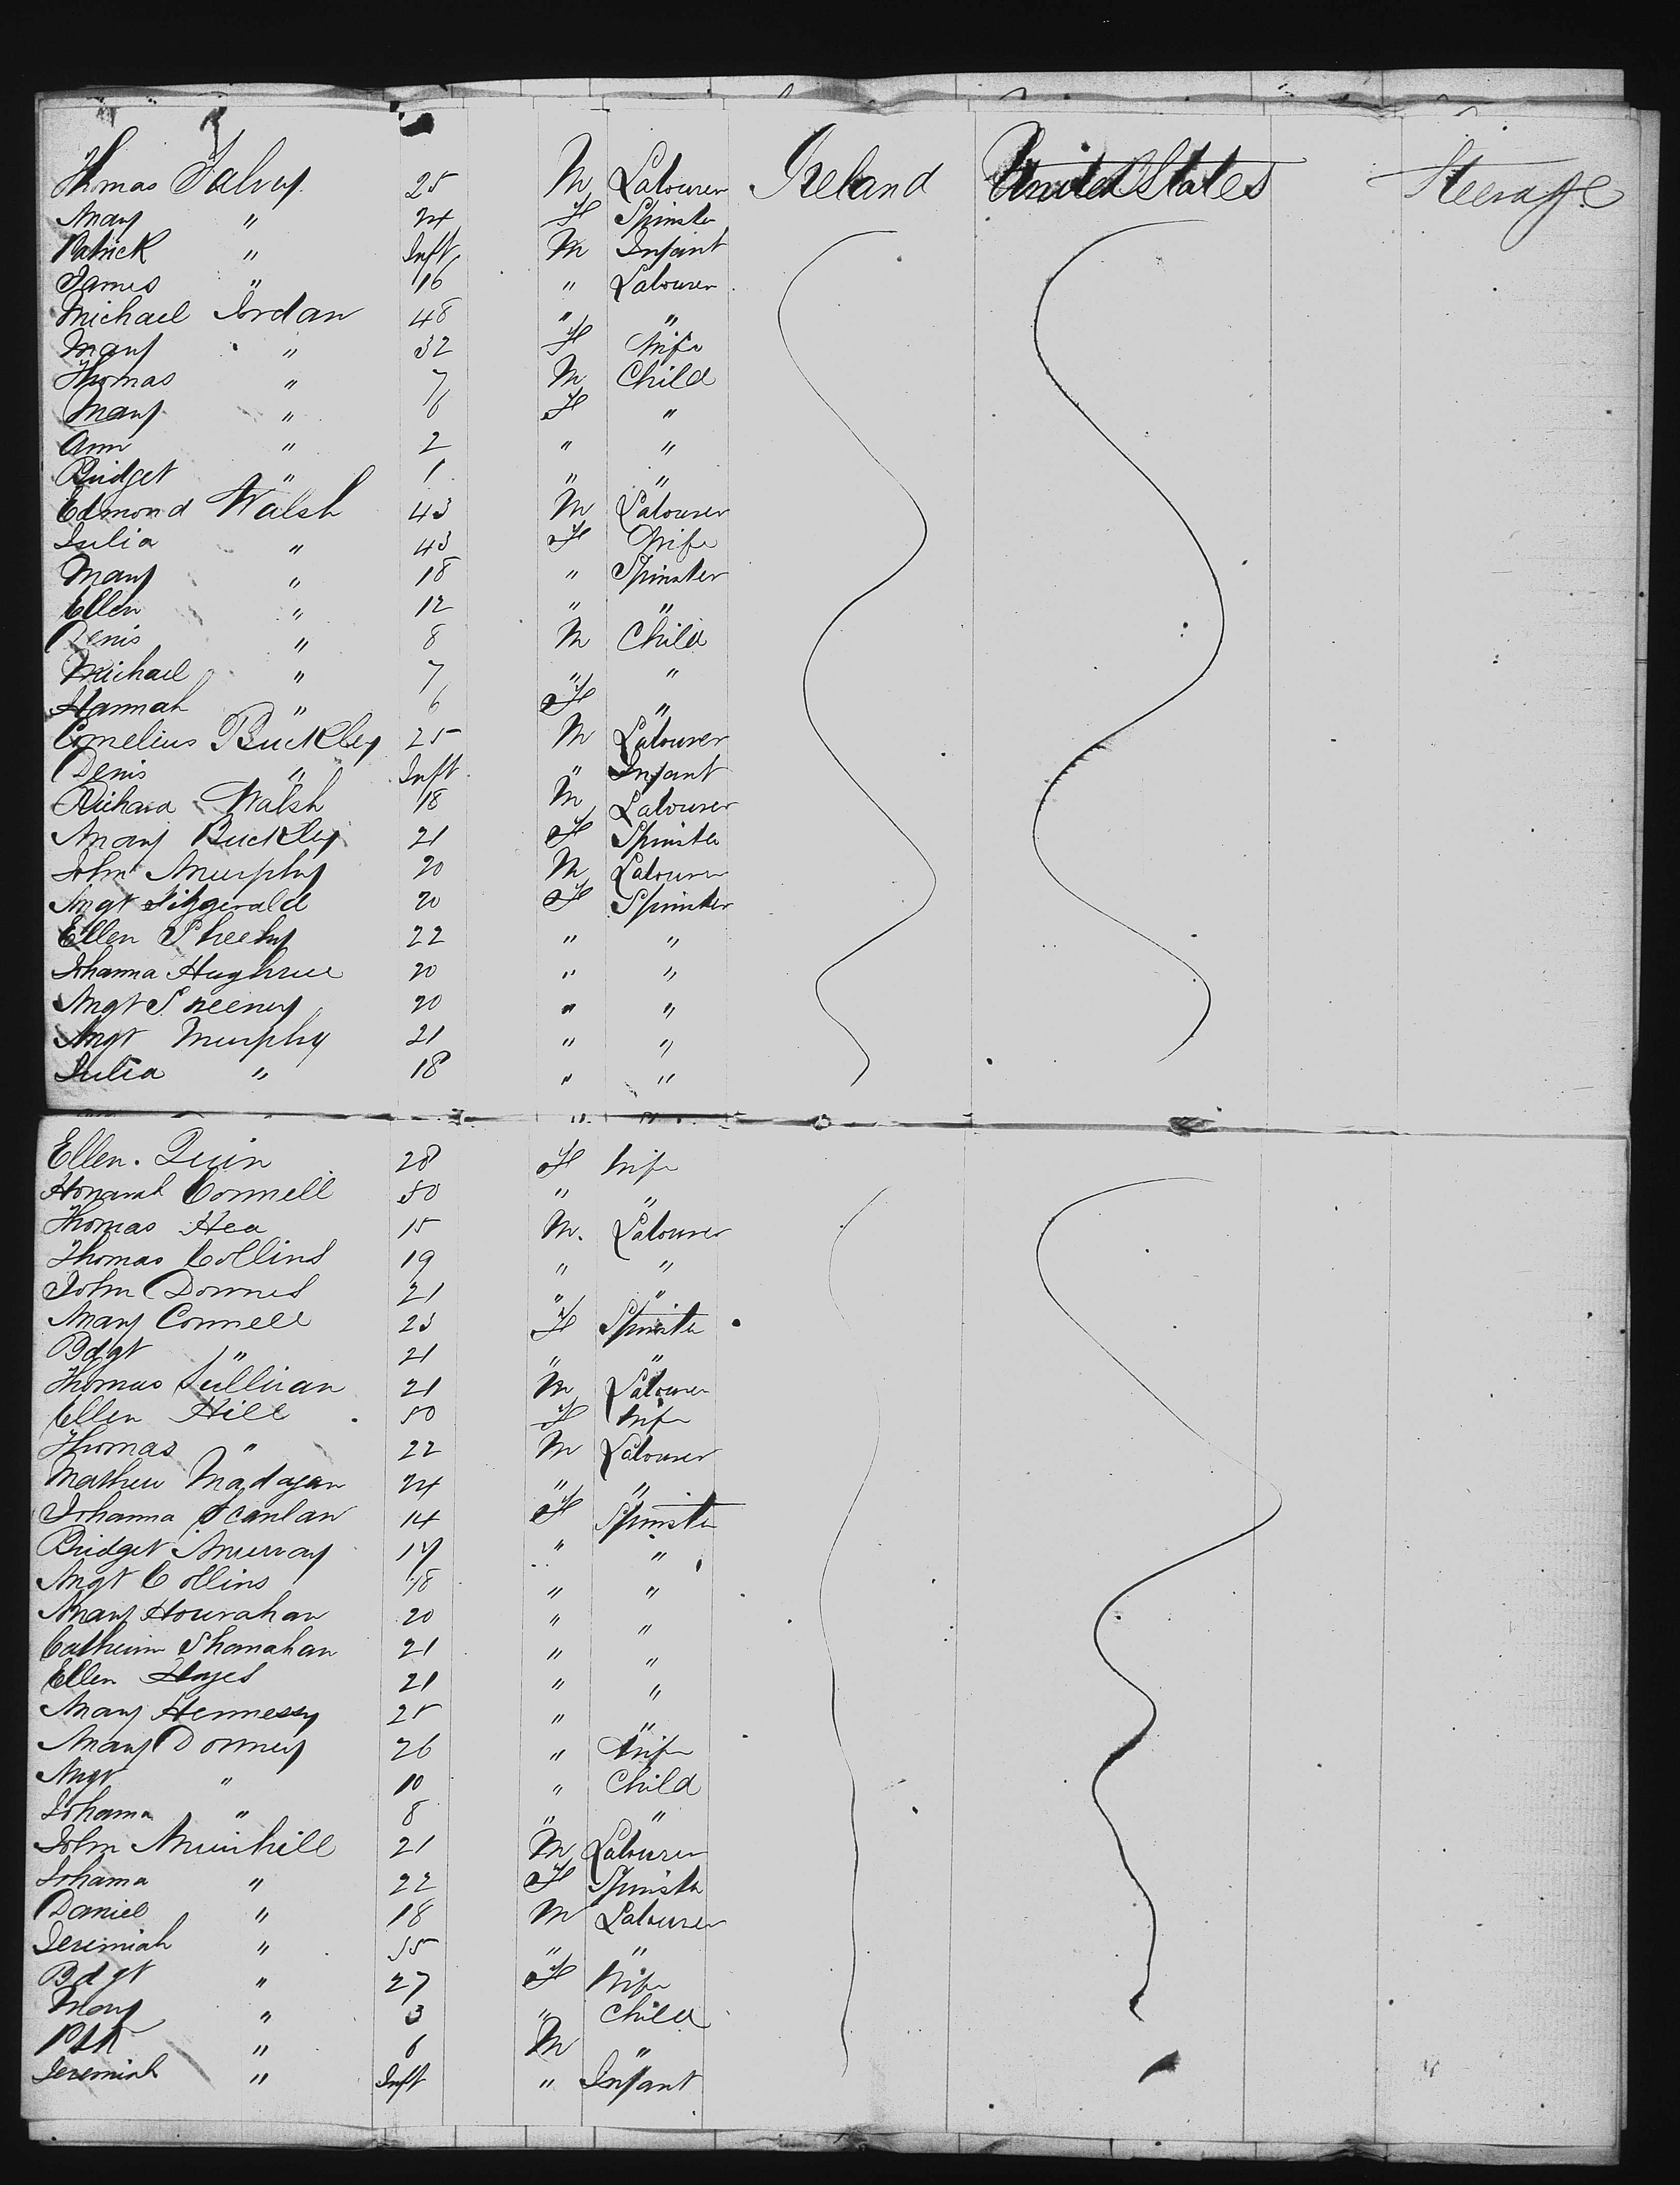 Thomas Galvey 25 M Labourer Ireland United States Steerage
Mary " 24 F Spinster
Patrick " Inft M Infant
James " 16 " Labourer
Michael Jordan 48 " "
Mary " 32 F Wife
Thomas " 7 M Child
Mary " 6 F "
Ann " 2 " "
Bridget " 1 " "
Edmond Walsh 43 M Labourer
Julia " 43 F Wife
Mary " 18 " Spinster
Ellen " 12 " "
Denis " 8 M Child
Michael " 7 " "
Hannah " 6 F "
Cornelius Buckley 25 M Labourer
Denis " Inft " Infant
Richard Walsh 18 M Labourer
Mary Buckley 21 F Spinster
John Murphy 20 M Labourer
Mgt Fitzgerald 20 F Spinster
Ellen Sheehy 22 " "
Johanna Hughrue 20 " "
Mgt Sweeney 20 " "
Mgt Murphy 21 " "
Julia " 18 " "
Ellen Quin 28 F Wife
Honorah Connell 50 " "
Thomas Hea 15 M. Labourer
Thomas Collins 19 " "
John Downes 21 " "
Mary Connell 23 F Spinster
Bdgt " 21 " "
Thomas Sullivan 21 M Labourer
Ellen Hill 50 F Wife
Thomas " 22 M Labourer
Mathew Madagan 24 " "
Johanna Scanlan 14 F Spinster
Bridget Murray 17 " "
Mgt Collins 18 " "
Mary Hourahan 20 " "
Catherine Shanahan 21 " "
Ellen Hayes 21 " "
Mary Hennessy 25 " "
Mary Downey 26 " Wife
Mgt " 10 " Child
Johana " 8 " "
John Muinhill 21 M Labourer
Johana " 22 F Spinster
Daniel " 18 M Labourer
Jeremiah " 35 " "
Bdgt " 27 F Wife
Mary " 3 " Child
Ptk " 6 M "
Jeremiah " Inft " Infant